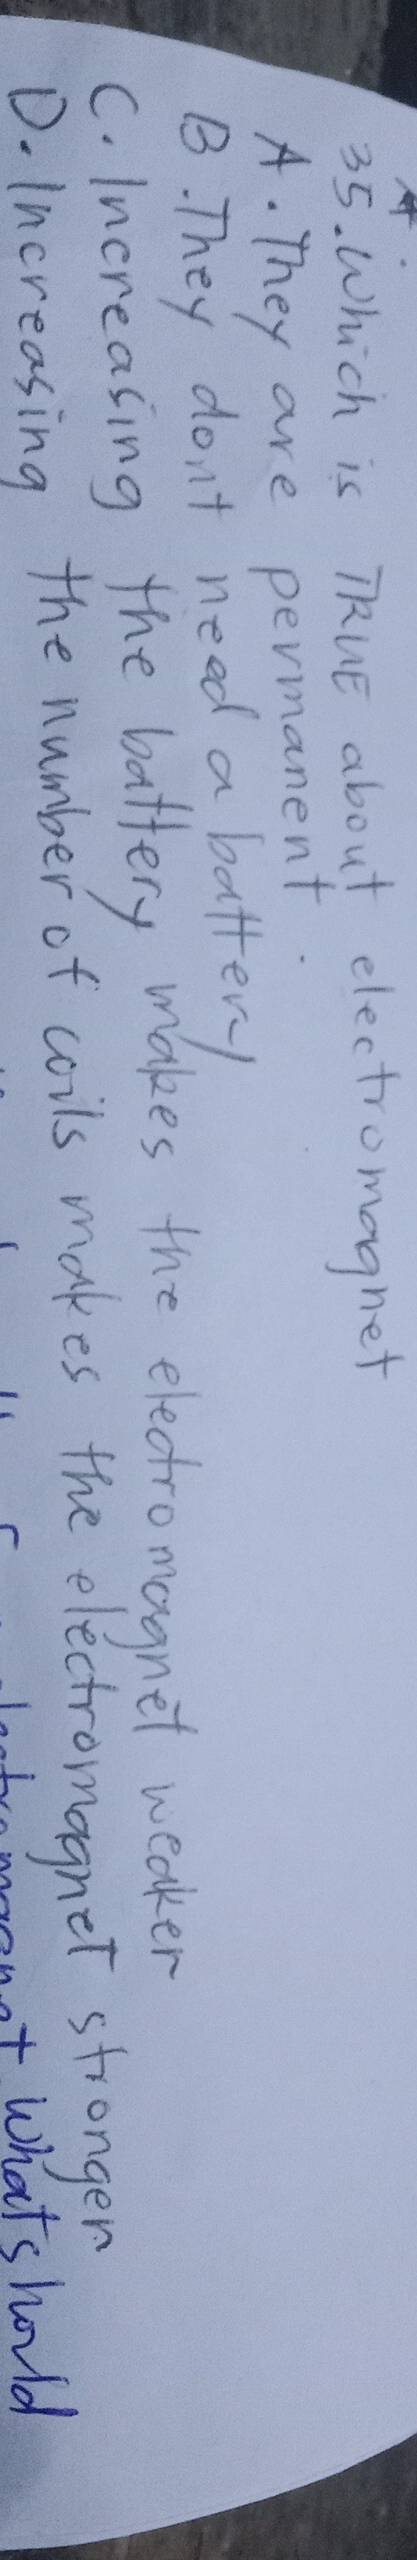 35. Which is TRUE about electromagnet
A. They are permanent.
B. They dont need a battery
C. Increasing the battery makes the electromagnet weaker
D. Increasing the number of coils makes the electromagnet stronger.
electromagnet. What should